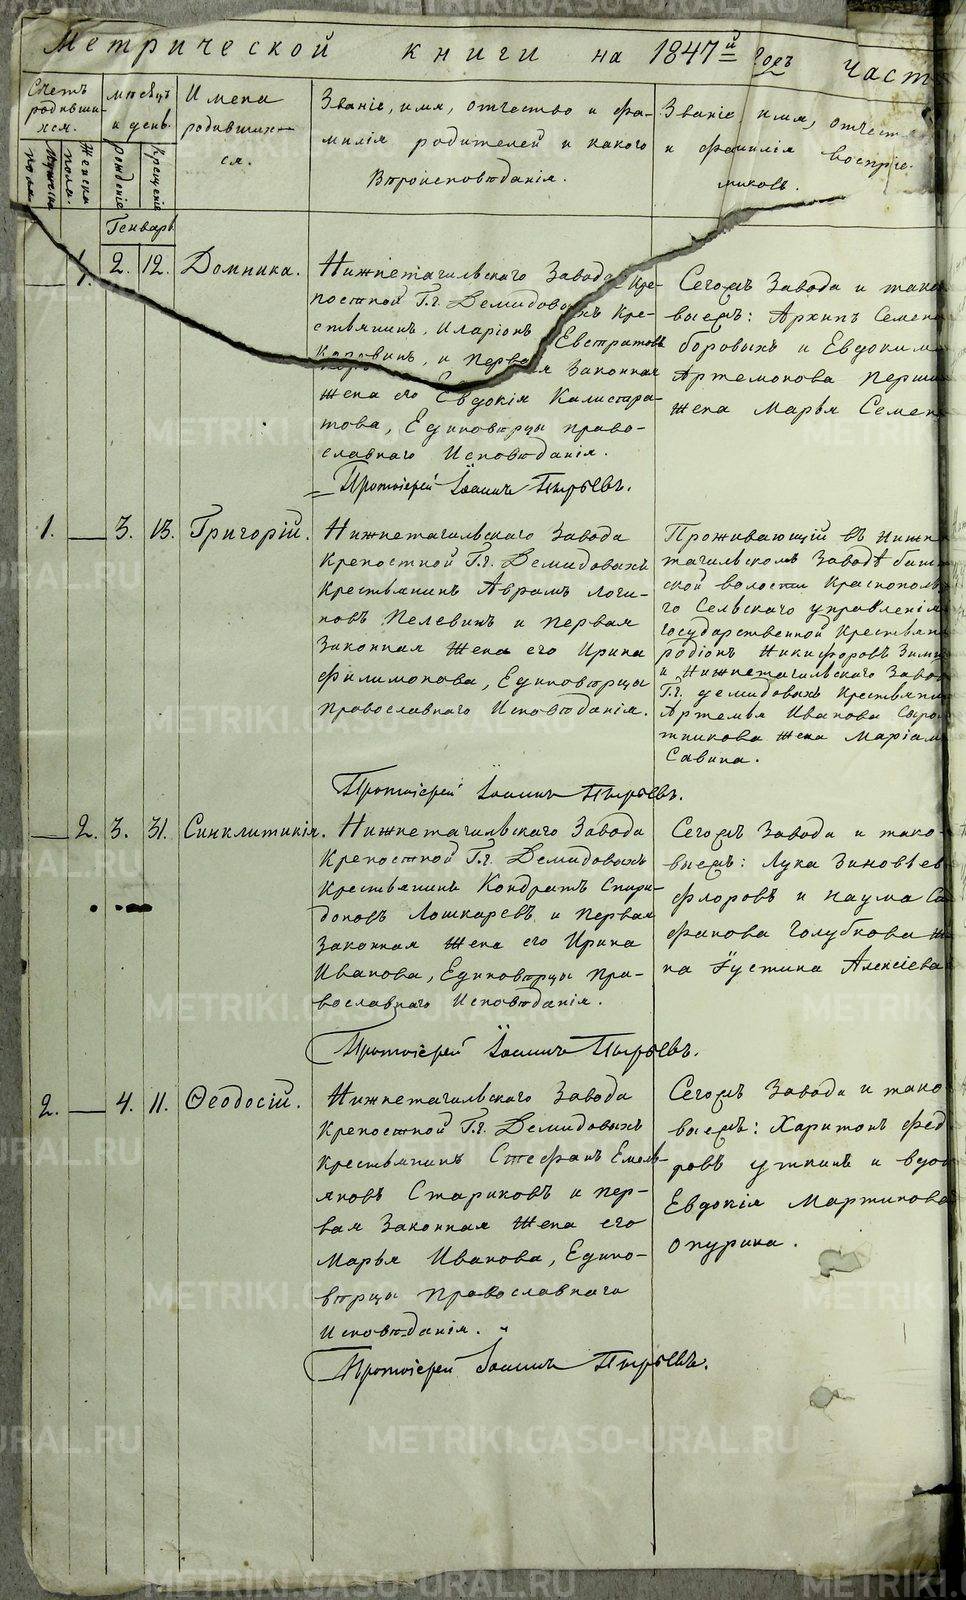 Метрической книги на 1847й Годъ Часть
Счетъ родивши-хся.
Мужеска пола.
Женска пола.
месѣцъ и день.
рожденіе
Крещеніе
Имена
родившихъ-
ся.
Званіе, имя, отчество и фа-
милія родителей и какого
Вѣроисповѣданія.
Званіе имя, отчест
и фамилія воспріе
миковъ.
Генварь
1. 2. 12. Домника.
Нижнетагильскаго Завода Кре-
постной Г.г. Демидовыхъ Кре-
стьянинъ, Иларіонъ Евстратовъ
Коровинъ, и первая Законная
жена его Евдокія Калистра-
това, Единовѣрцы право-
славнаго Исповѣданія.
Протоіерей Іоаннъ Пырьевъ.
Сегожъ Завода и тако
выежъ: Архипъ Семен
боровыхъ и Евдоким
Артемонова Перши
жена Марья Семен
1. — 3. 13. Григорій.
Нижнетагильскаго Завода
Крепостной Г.г. Демидовыхъ
Крестьянинъ Аврамъ Логи-
новъ Пелевинъ и первая
Законная жена его Ирина
Филимонова, Единовѣрцы
Православнаго Исповѣданія.
Протоіерей Іоаннъ Пырьевъ.
Проживающій въ Нижн
тагильскомъ Заводѣ
ской волости Краснополь
го Сельскаго управленія
Государственной Крестьян
родіонъ Никифоровъ Зими
и Нижнетагильскаго Завод
Г.г. демидовыхъ Крестьянин
Артемья Иванова Сыро
тникова жена Маріам
Савина.
— 2. 3. 31. Синклитикія.
Нижнетагильскаго Завода
Крепостной Г.г. Демидовыхъ
Крестьянинъ Кондратъ Спири-
доновъ Лошкаревъ и Первая
Законная жена его Ирина
Иванова, Единовѣрцы Пра-
вославнаго Исповѣданія.
Протоіерей Іоаннъ Пырьевъ.
Сегожъ Завода и тако-
выежъ: Лука Зиновьев
Флоровъ и Наума Са
фанова Голубкова же
на Іустина Алексіева
2. — 4. 11. Ѳеодосій.
Нижнетагильскаго Завода
Крепостной Г.г. Демидовыхъ
Крестьянинъ Стефанъ Емель-
яновъ Стариковъ и пер-
вая Законная жена его
Марья Иванова, Едино-
вѣрцы Православнаго
Исповѣданія.
Протоіерей Іоаннъ Пырьевъ.
Сегожъ Завода и тако
выежъ: Харитонъ Фед
ровъ уткинъ и вдов
Евдокія Мартинова
Опурина.
METRIKI.GASO-URAL.RU